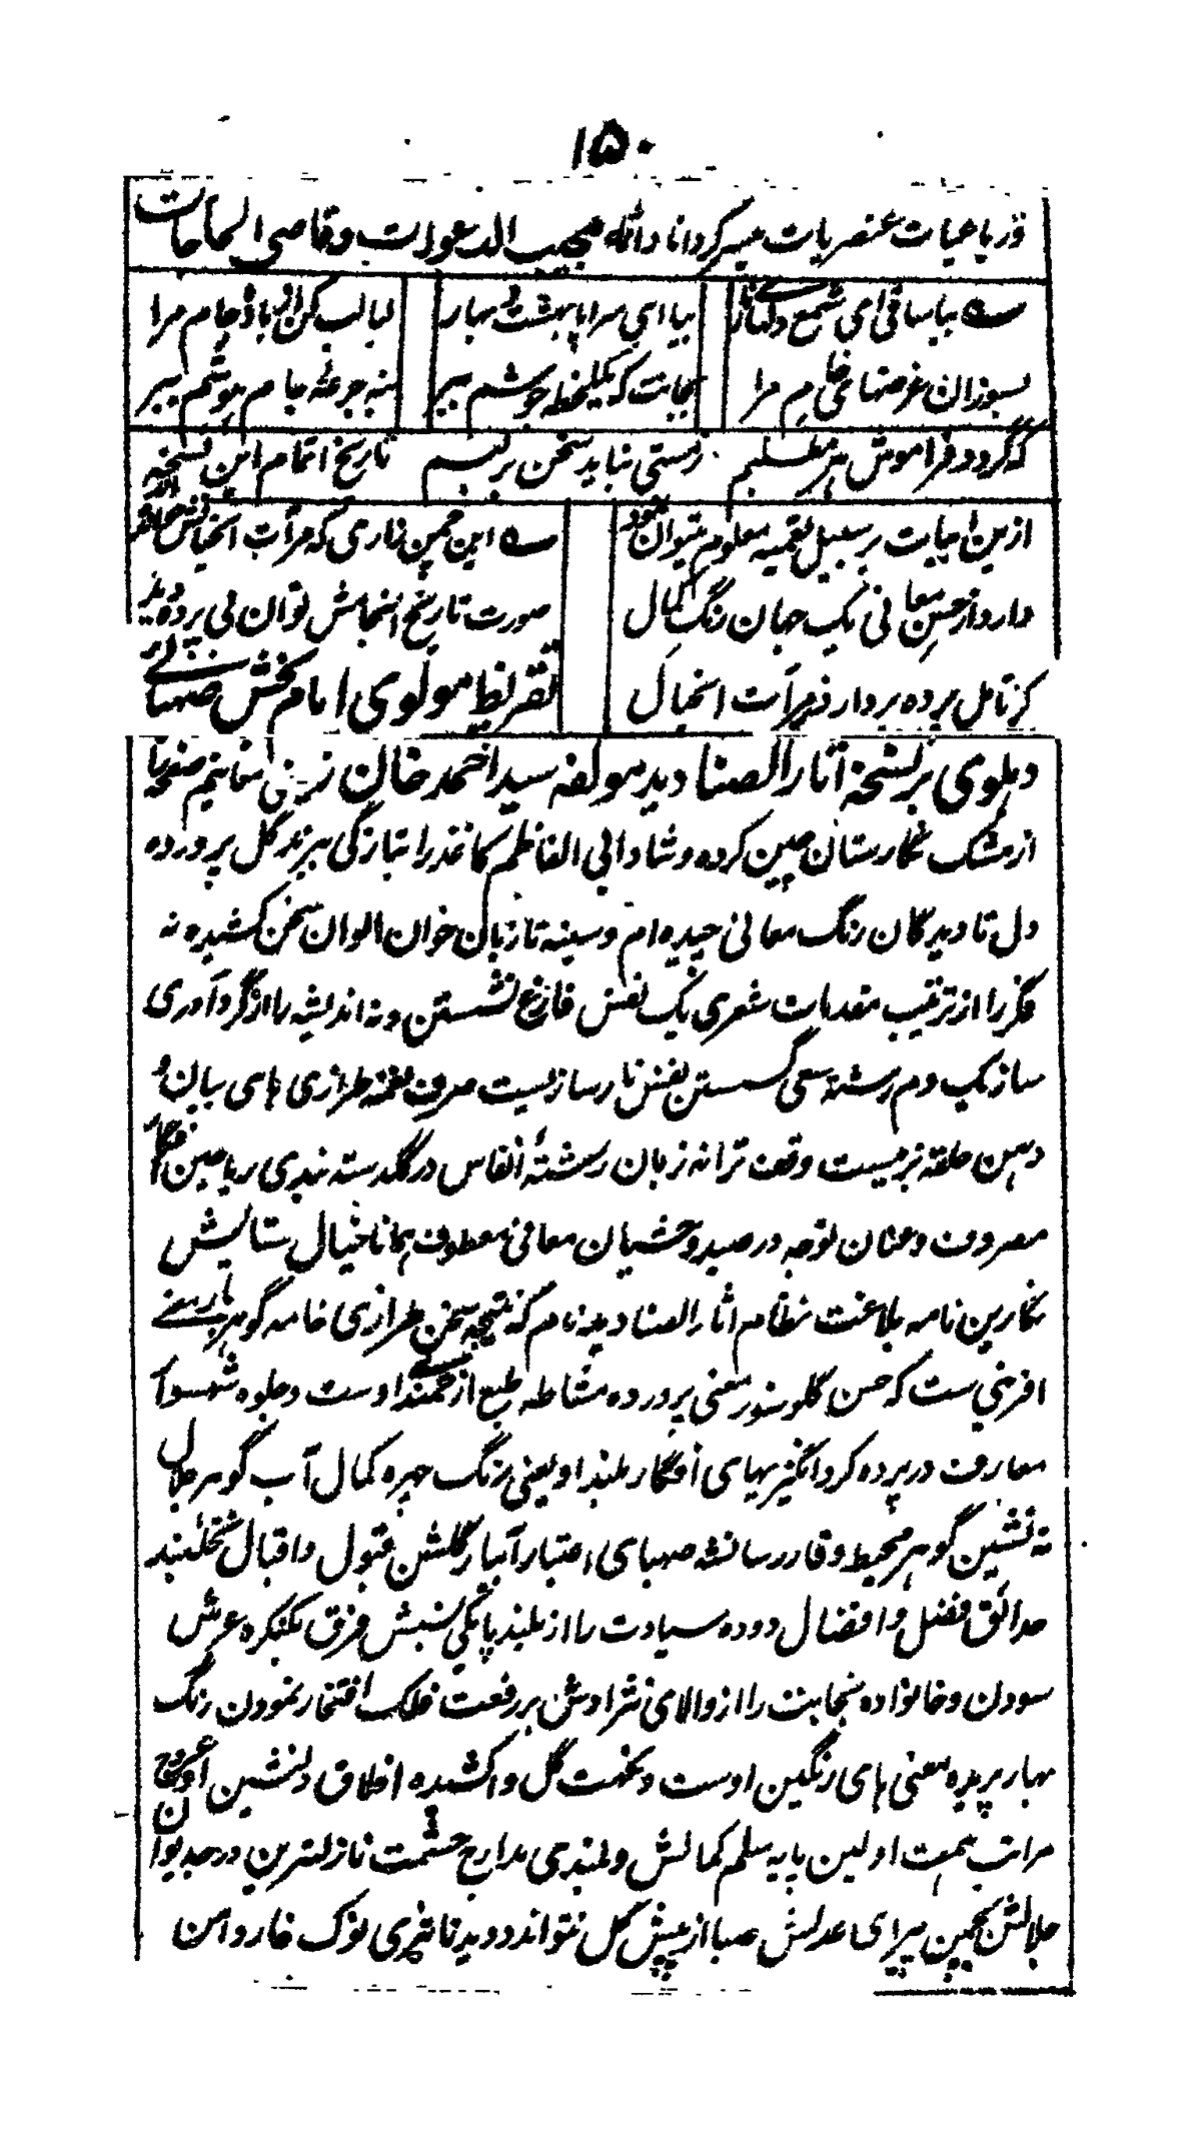 ۱۵۰
و رباعیات عنصریات میسر گرداناد انه مجیب الدعوات و قاضی الحاجات
بیا ساقی ای شمع دلهای تار
بیا ای سراپا بهشت و بهار
لبالب کن از باده جام مرا
بسوزان غرضهای خام مرا
بجانت که یکلحظه جوشم ببر
بنه جرعهٔ جام هوشم ببر
که گردد فراموش هر مطلبم
ز مستی نیاید سخن بر لبم
تاریخ اتمام این نسخه
ازین ابیات بر سبیل تعمیه معلوم میتوان نمود
این چمن زاری که مرآت الخیالش
دارد از حسن معانی یک جهان رنگ کمال
صورت تاریخ انجامش توان بی پرده دید
گر تامل پرده بردارد ز مرآت الخیال
تقریظ مولوی امام بخش صهبائی
دهلوی بر نسخه آثار الصنادید مولفه سید احمد خان
از مشک نگارستان چین کرده و شادابی الفاظم کاغذ را بتازگی برگ گل پرورده
دل تا دیدگان رنگ معانی چیده ام و سینه تا زبان خوان الوان سخن کشیده نه
فکر را از ترتیب مقدمات شعری یک نفس فارغ نشستن و نه اندیشه را از گردآوری
ساز یک دم رشتهٔ سعی گسستن نفس نارسا زیست صرف نغمه طرازی های بیان و
دهن حلقه بزمیست وقف ترانه زبان رشتهٔ انفاس در گلدسته بندی ریاحین افکار
مصروف و عنان توجه در صید وحشیان معانی معطوف همانا خیال ستایش
نگارین نامه بلاغت نظام آثار الصنادید نام که نتیجه سخن طرازی خامه گوهر بار سخن
آفرینی ست که حسن گلوسوز معنی پرورده مشاطه طبع ارجمند اوست و جلوه شهسوار
معارف در پرده گرد انگیزیهای افکار بلند او یعنی رنگ چهره کمال آب گوهر جلال
ته نشین گوهر محیط وقار رسا نشه صهبای اعتبار آبیار گلشن قبول و اقبال نخلبند
حدائق فضل و افضال دوده سیادت را از بلند پایگی نسبش فرق بکنگره عرش
سودن و خانواده نجابت را از والای نژادش بر رفعت فلک افتخار نمودن رنگ
بهار پریده معنی های رنگین اوست و نکهت گل واکشیده اخلاق دلنشین او عروج
مراتب همت اولین پایه سلم کمالش و بلندی مدارج حشمت نازلترین درجه دیوان
جلالش بچمن پیرای عدلش صبا از پیش گل نتواند دوید تا تیزی نوک خار دامن